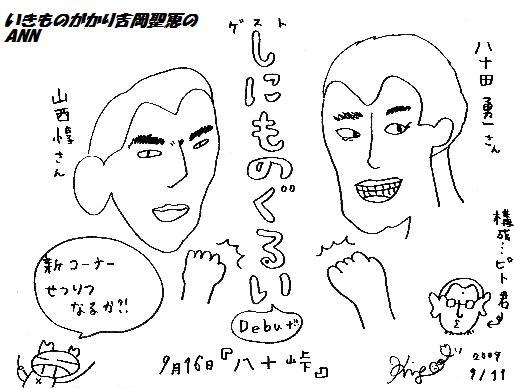 いきものがかり吉岡聖恵の
ANN
ゲスト
しにものぐるい
Debuだ
八十田勇一さん
山西惇さん
新コーナー
せつりつ
なるか?!
構成…ピト君
9月16日『八十山卡』
2009
9/11